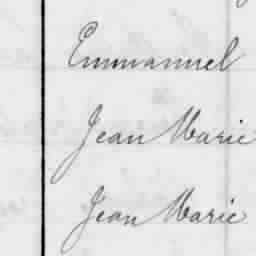 Emmanuel
Jean Marie
Jean Marie